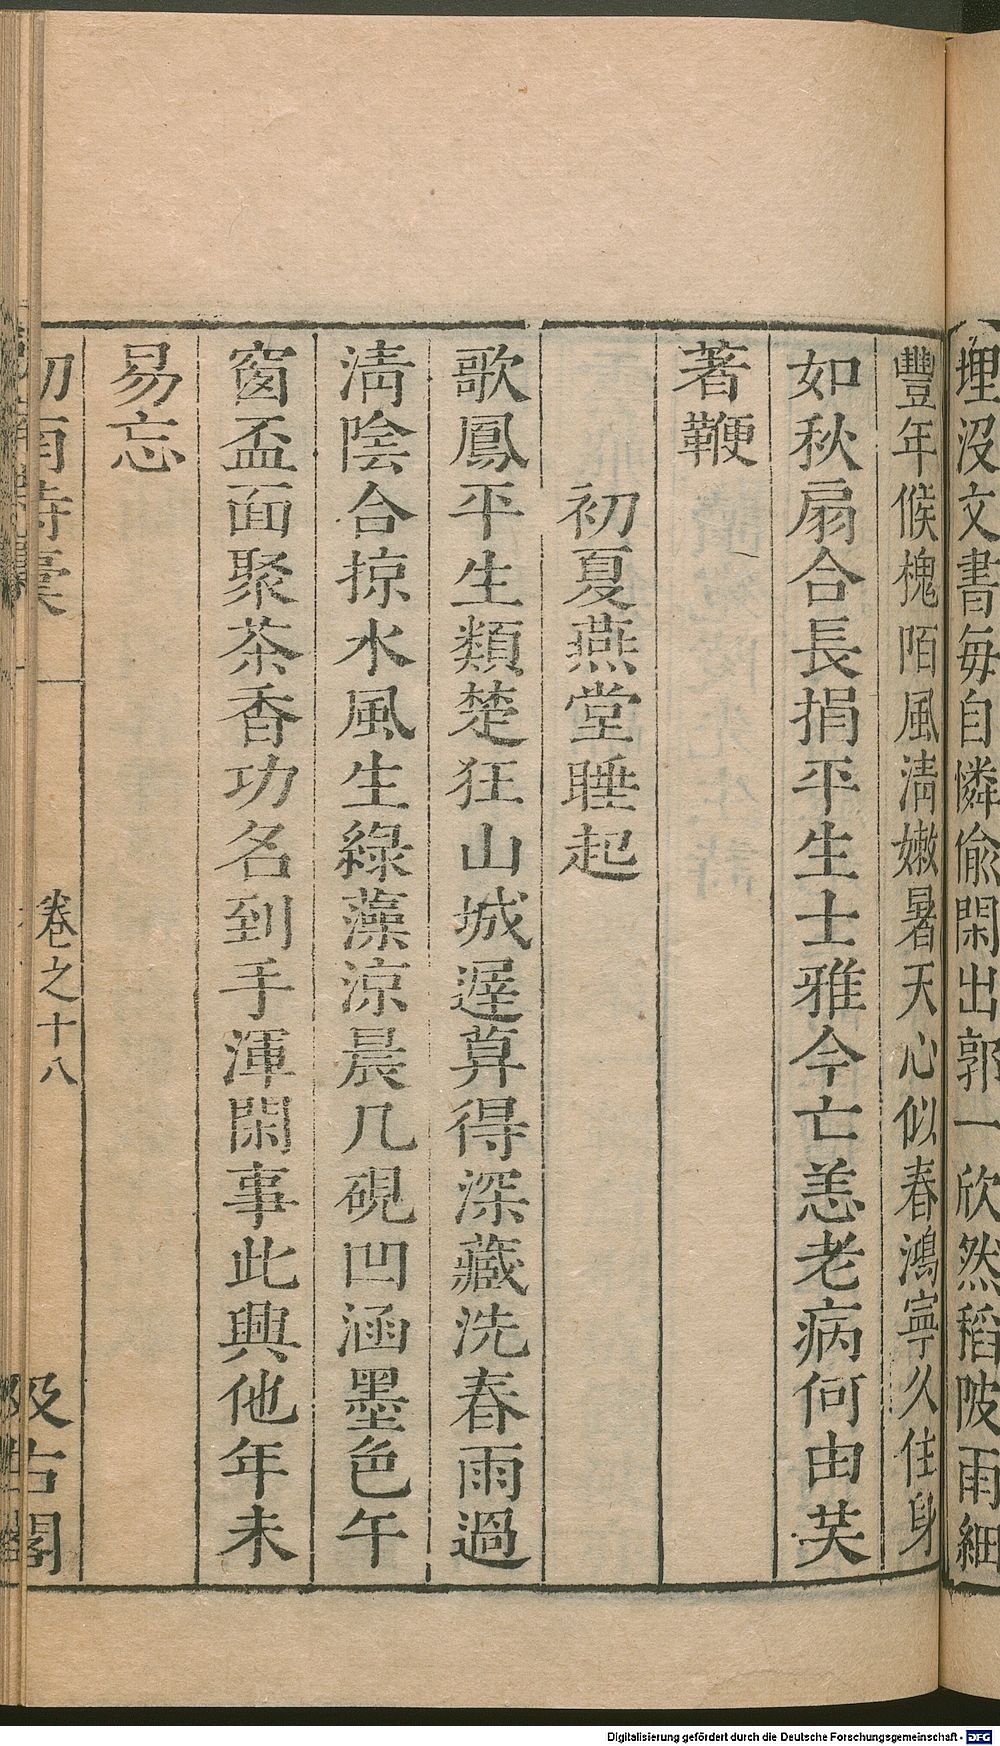 埋沒文書每自憐偷閑出郭一欣然稻陂雨細
豐年候槐陌風淸嫩暑天心似春鴻寧久住身
如秋扇合長捐平生士雅今亡恙老病何由芺
著鞭
初夏燕堂睡起
歌鳳平生類楚狂山城遲算得深藏洗春雨過
淸陰合掠水風生綠藻涼晨几硯凹涵墨色午
窗盃面聚茶香功名到手渾閑事此興他年未
易忘
劒南詩藁
卷之十八
汲古閣
Digitalisierung gefördert durch die Deutsche Forschungsgemeinschaft - DFG